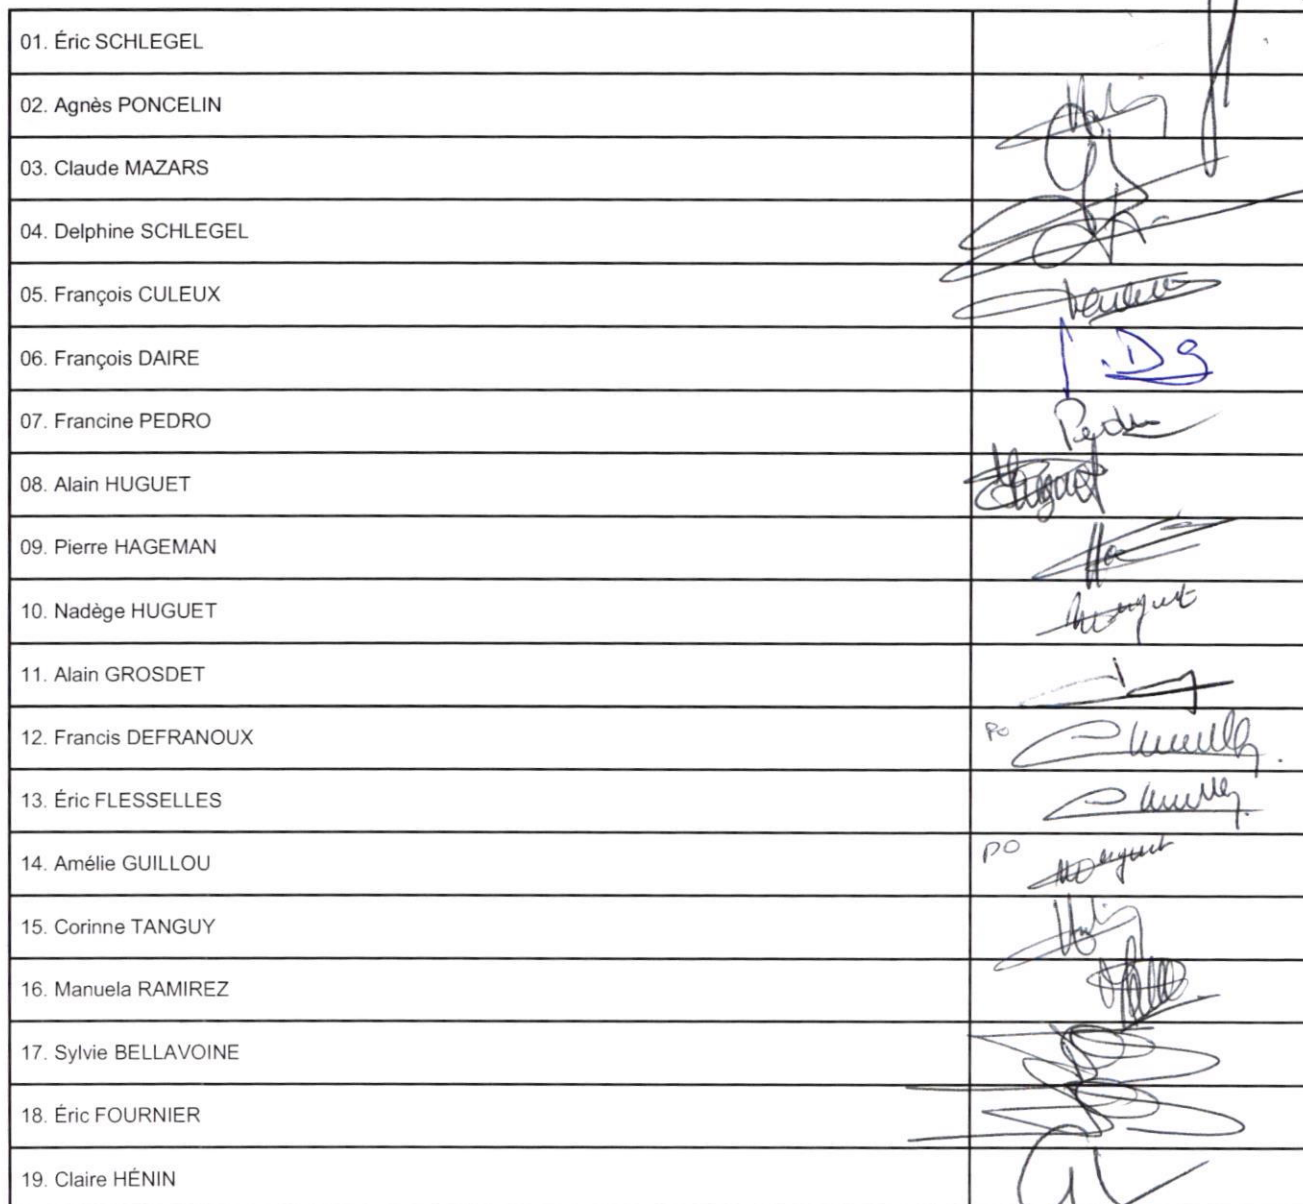 01. Éric SCHLEGEL
02. Agnès PONCELIN
03. Claude MAZARS
04. Delphine SCHLEGEL
05. François CULEUX
06. François DAIRE
07. Francine PEDRO
Pedro
08. Alain HUGUET
Huguet
09. Pierre HAGEMAN
10. Nadège HUGUET
11. Alain GROSDET
12. Francis DEFRANOUX
PO
13. Éric FLESSELLES
14. Amélie GUILLOU
PO
15. Corinne TANGUY
16. Manuela RAMIREZ
17. Sylvie BELLAVOINE
18. Éric FOURNIER
19. Claire HÉNIN